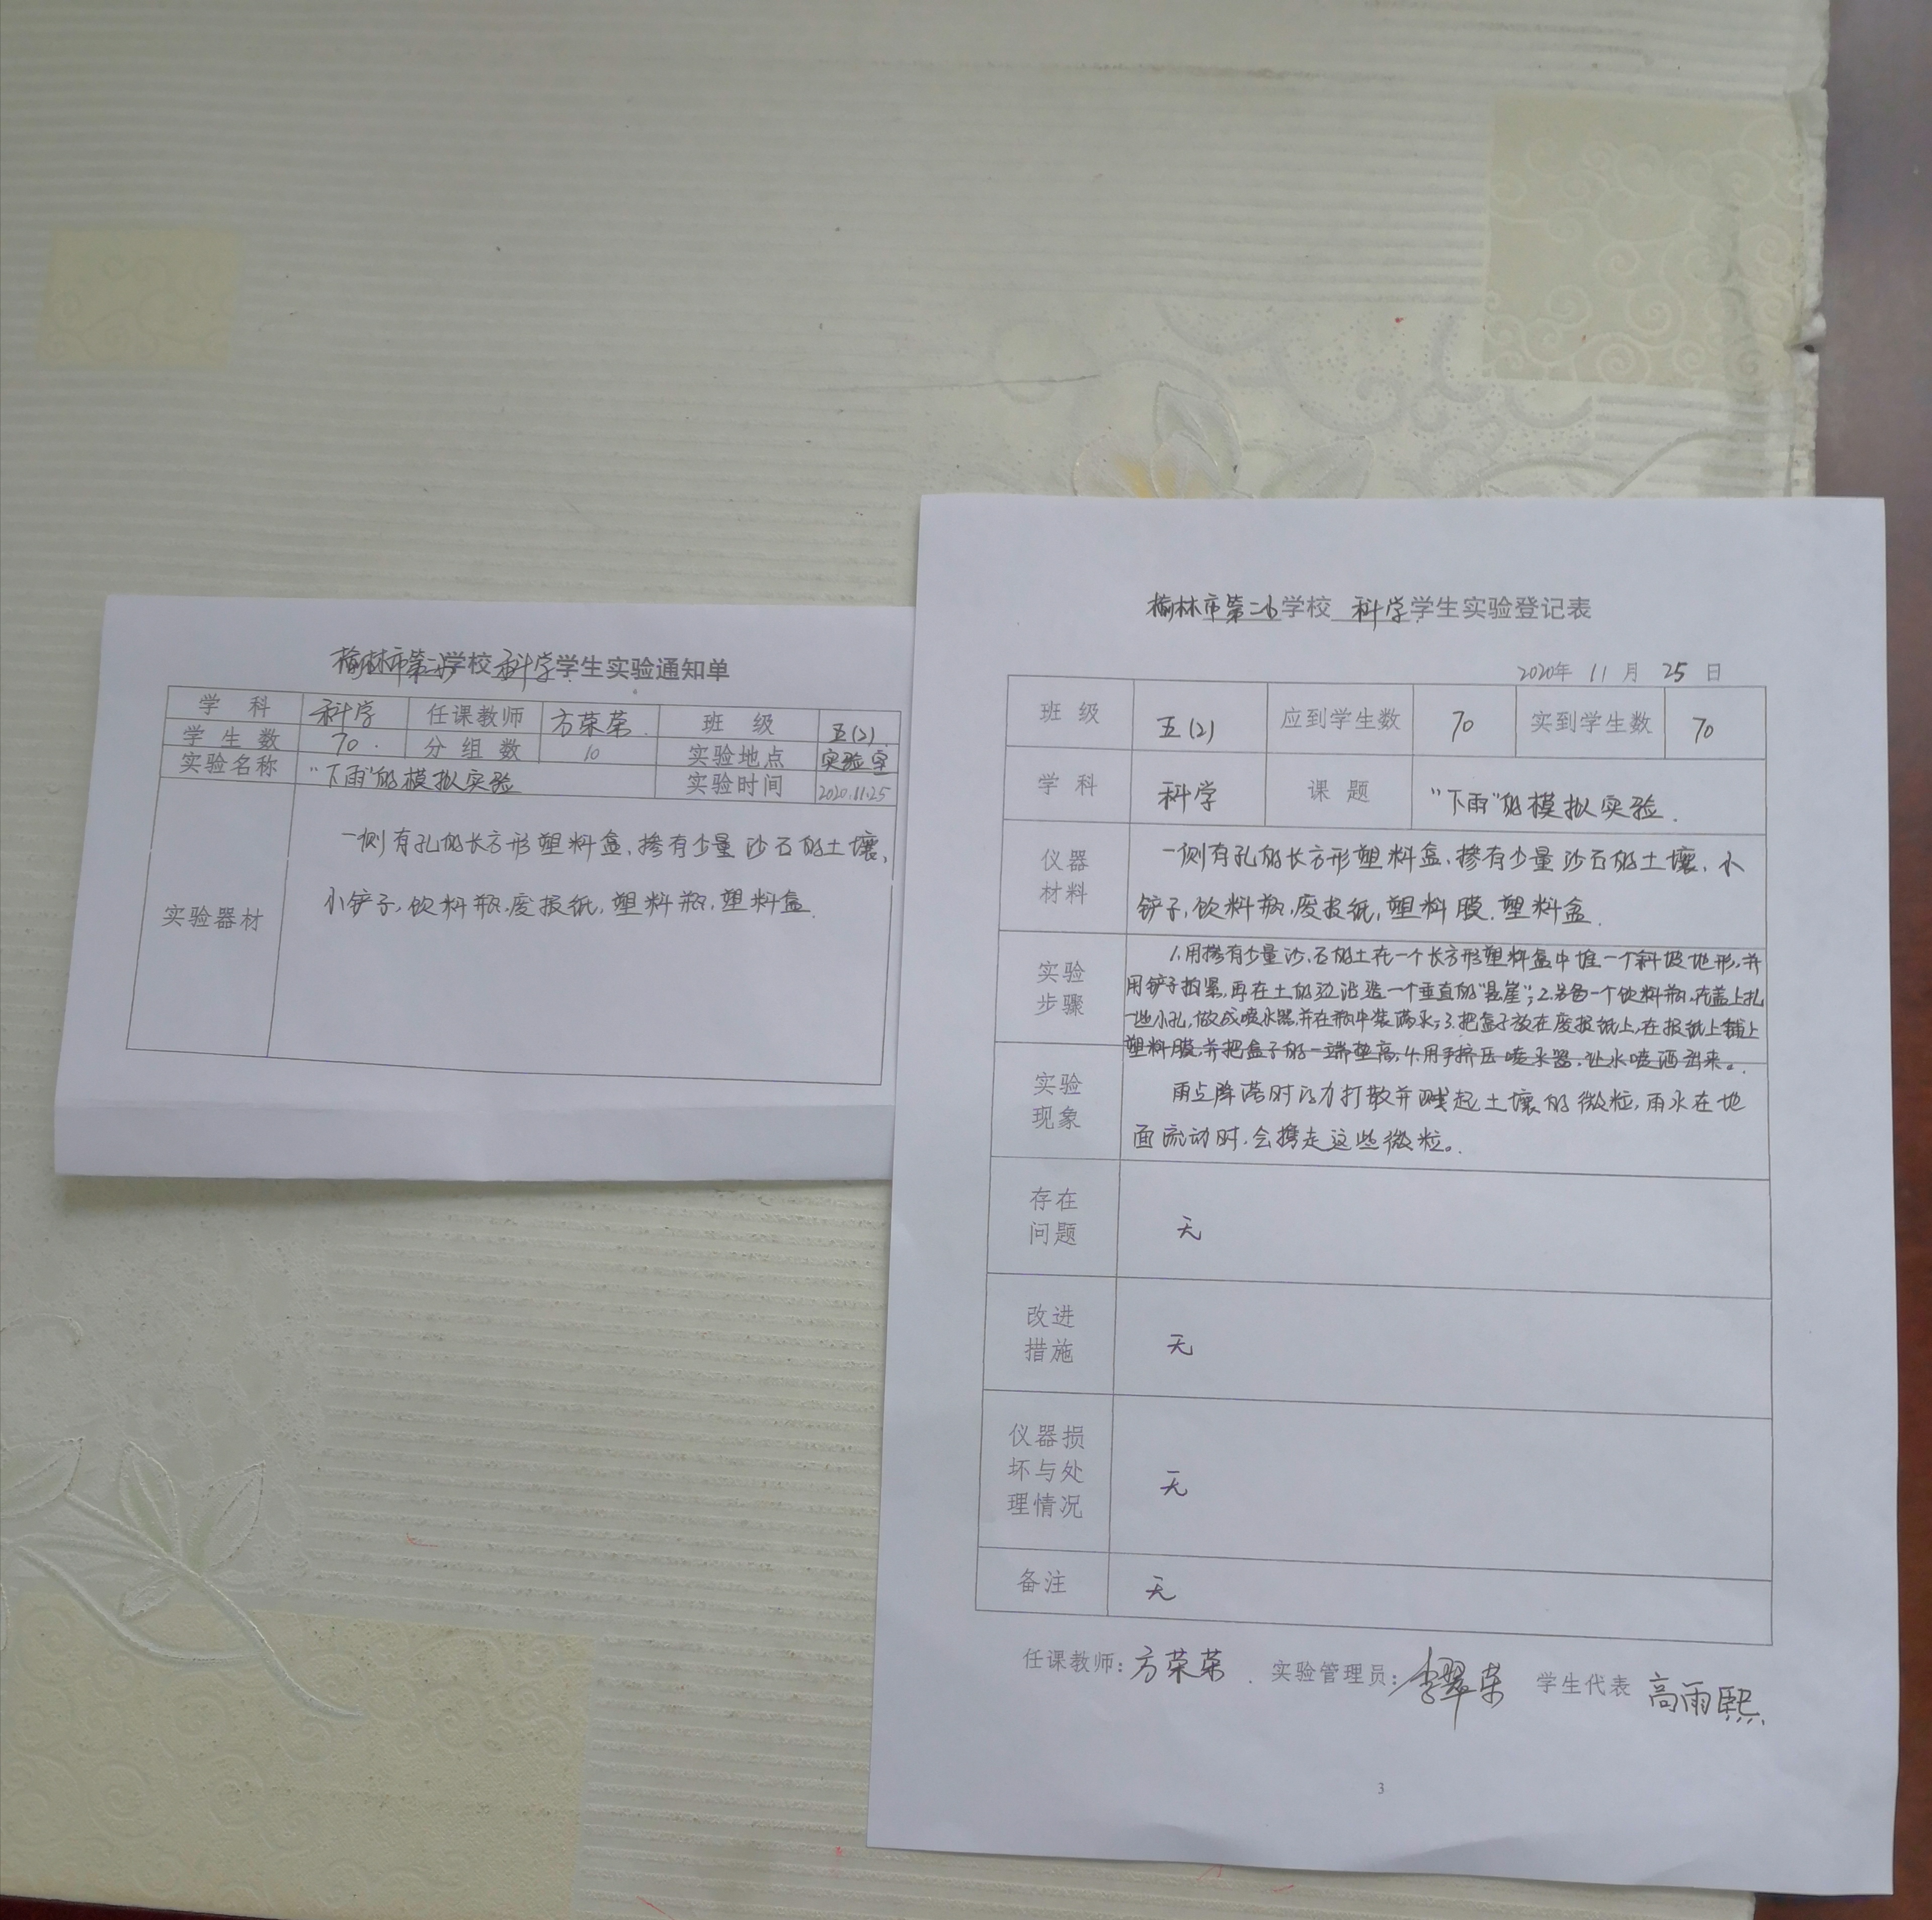 榆林市第二小学校 科学学生实验通知单
学 科 科学 任课教师 方荣荣 班 级 五(2)
学生数 70. 分组数 10 实验地点 实验室
实验名称 “下雨”的模拟实验 实验时间 2020.11.25
实验器材
一侧有孔的长方形塑料盒,掺有少量沙石的土壤,
小铲子,饮料瓶,废报纸,塑料瓶,塑料盒.
榆林市第二小学校 科学学生实验登记表
2020年 11 月 25 日
班 级 五(2) 应到学生数 70 实到学生数 70
学 科 科学 课 题 “下雨”的模拟实验.
仪器
材料
一侧有孔的长方形塑料盒,掺有少量沙石的土壤,小
铲子,饮料瓶,废报纸,塑料膜,塑料盒.
实验
步骤
1.用掺有少量沙、石的土在一个长方形塑料盒中堆一个斜坡地形,并
用铲子拍紧,再在土的边沿造一个垂直的“悬崖”;2.另备一个饮料瓶,在盖上扎
一些小孔,做成喷水器,并在瓶中装满水;3.把盒子放在废报纸上,在报纸上铺上
塑料膜,并把盒子的一端垫高;4.用手挤压喷水器,让水喷洒出来。
实验
现象
雨点降落时的力打散并溅起土壤的微粒,雨水在地
面流动时,会携走这些微粒。
存在
问题
无
改进
措施
无
仪器损
坏与处
理情况
无
备注 无
任课教师:方荣荣. 实验管理员:李翠荣 学生代表 高雨熙.
3